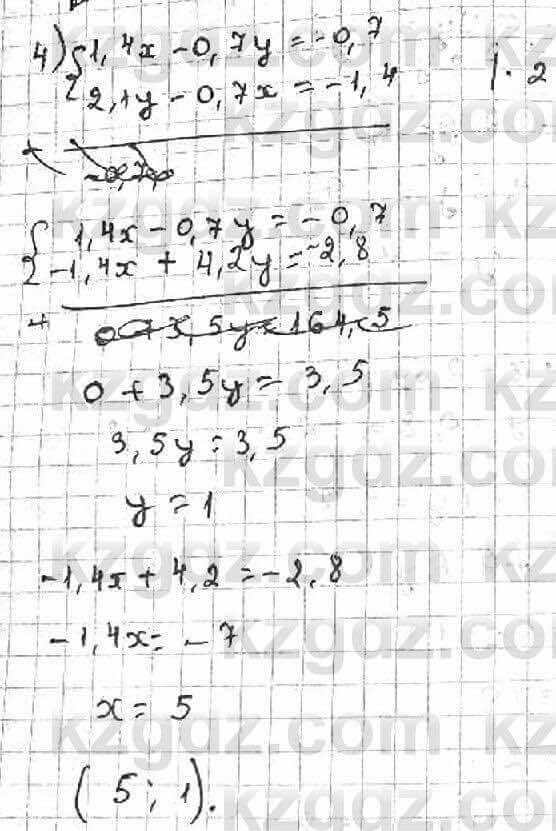 4) { 1,4x - 0,7y = -0,7
2,1y - 0,7x = -1,4 | · 2
+
{ 1,4x - 0,7y = -0,7
-1,4x + 4,2y = -2,8
+
0 + 3,5y = 3,5
3,5y = 3,5
y = 1
-1,4x + 4,2 = -2,8
-1,4x = -7
x = 5
(5; 1).
kzgdz.com